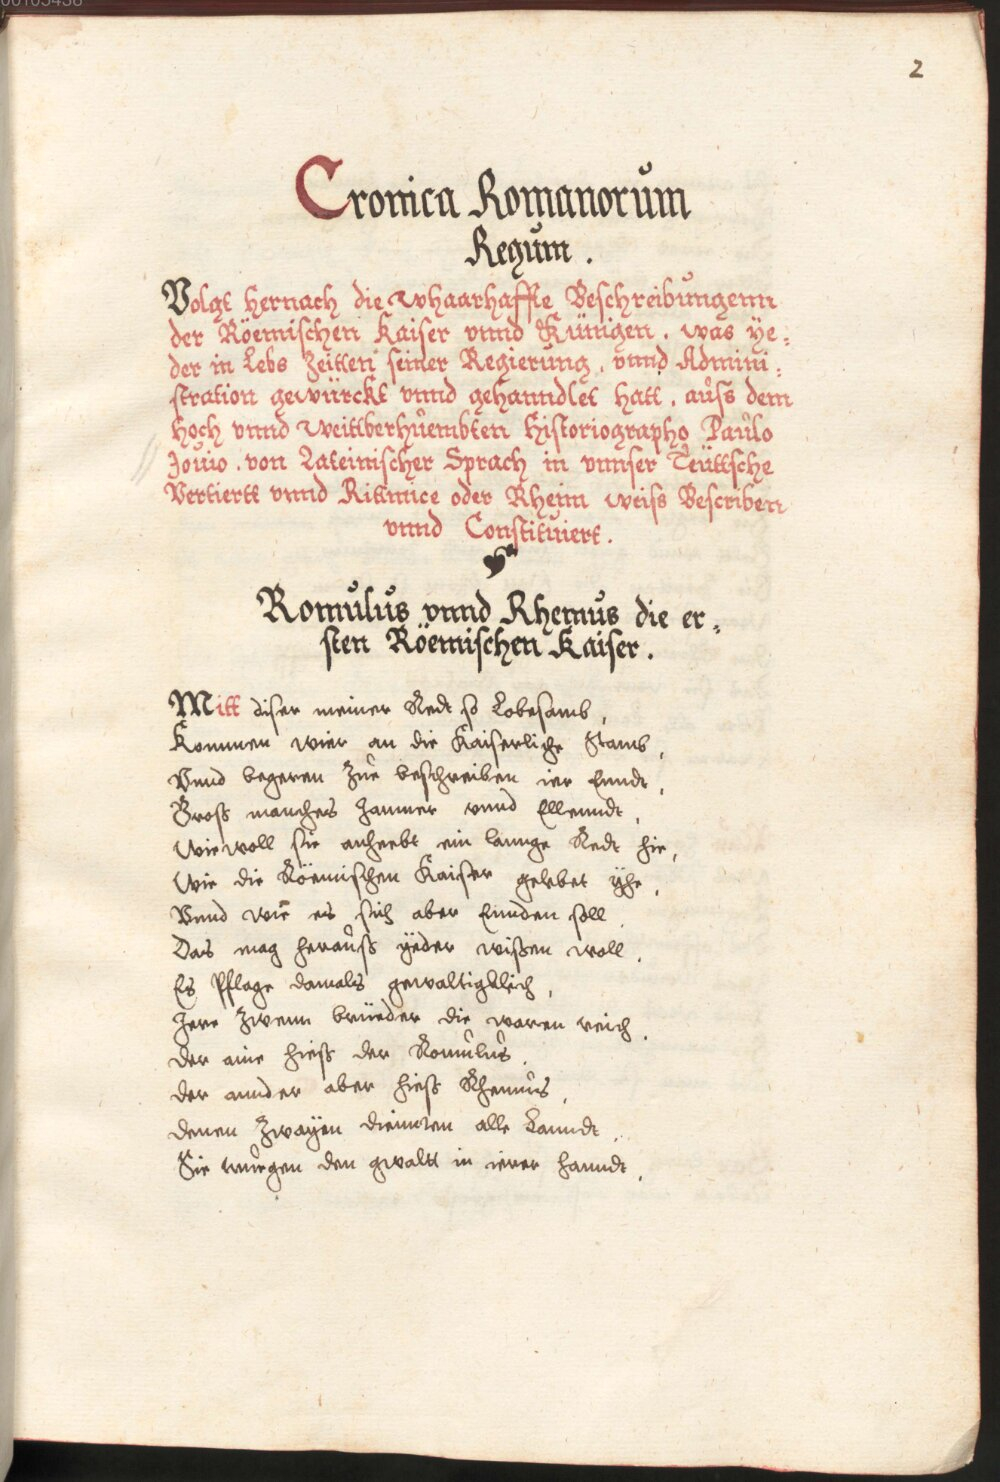 2
Cronica Romanorům
Regům.
Volgt hernach die whaarhaffte Beschreibůngenn
der Röemischen Kaiser vnnd Künigen. was ye-
der in Lebs Zeitten seiner Regierůng, vnnd Admini-
stration gewürckt vnnd gehanndlet hatt. aůss dem
hoch vnnd weittberhůembten historiographo Paůlo
Jouio. von Lateinischer Sprach in vnnser Teüttsche
Vertiertt vnnd Rittmice oder Rheim weiss Bescriben
vnnd Constitůiert.
Romůlůs vnnd Rhemůs die er-
sten Röemischen Kaiser.
Mitt diser meiner Redt so Lobesamb,
Kommen wier an die Kaiserliche Stamb,
Vnnd begeren Zůe beschreiben ier Enndt,
Gross manches Jammer vnnd Ellenndt,
Wiewoll sie anheebt ein lannge Redt hie,
Wie die Röemischen Kaiser gelebet yhe,
Vnnd wie es sich aber Ennden soll
Das mag heraůss yeder wissen woll.
Es Pflage damals gewaltigklich,
Jere Zwenn brüeder die waren reich.
der aine hiess der Romůlůs.
der annder aber hiess Rhemůs,
denen Zwayen dieinten alle Lanndt,
Sie trůegen den gwaltt in ierer hanndt,